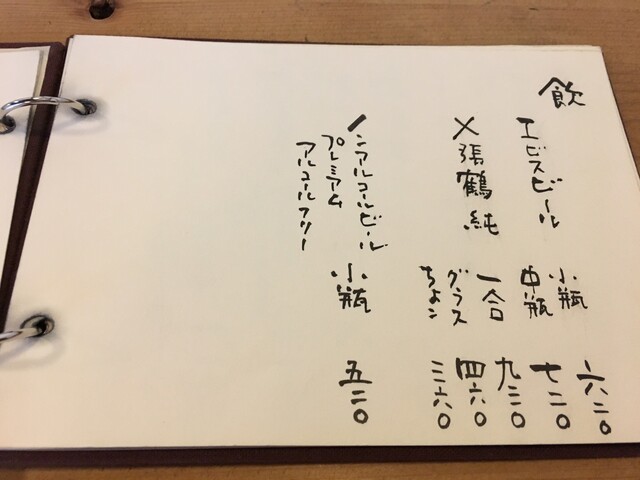 飲
エビスビール 小瓶 六二〇
中瓶 七二〇
〆張鶴 純 一合 九三〇
グラス 四六〇
ちょこ 三六〇
ノンアルコールビール 小瓶 五二〇
プレミアム
アルコールフリー